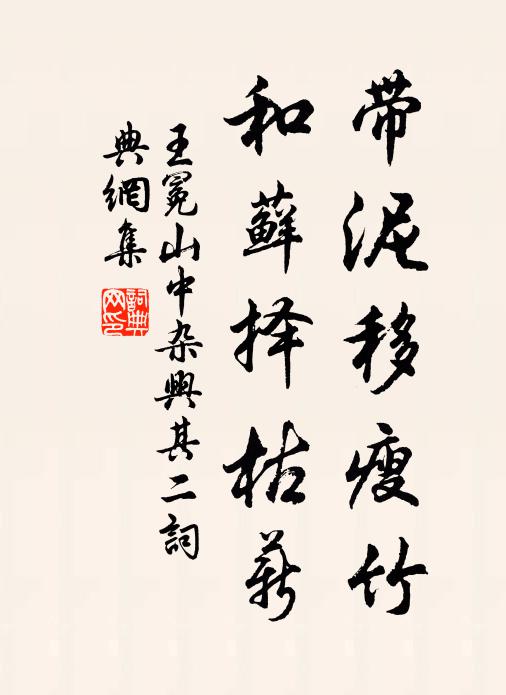 带泥移瘦竹
和蘚择枯薪
王冕山中杂興其二詞
典網集
詞典
网印